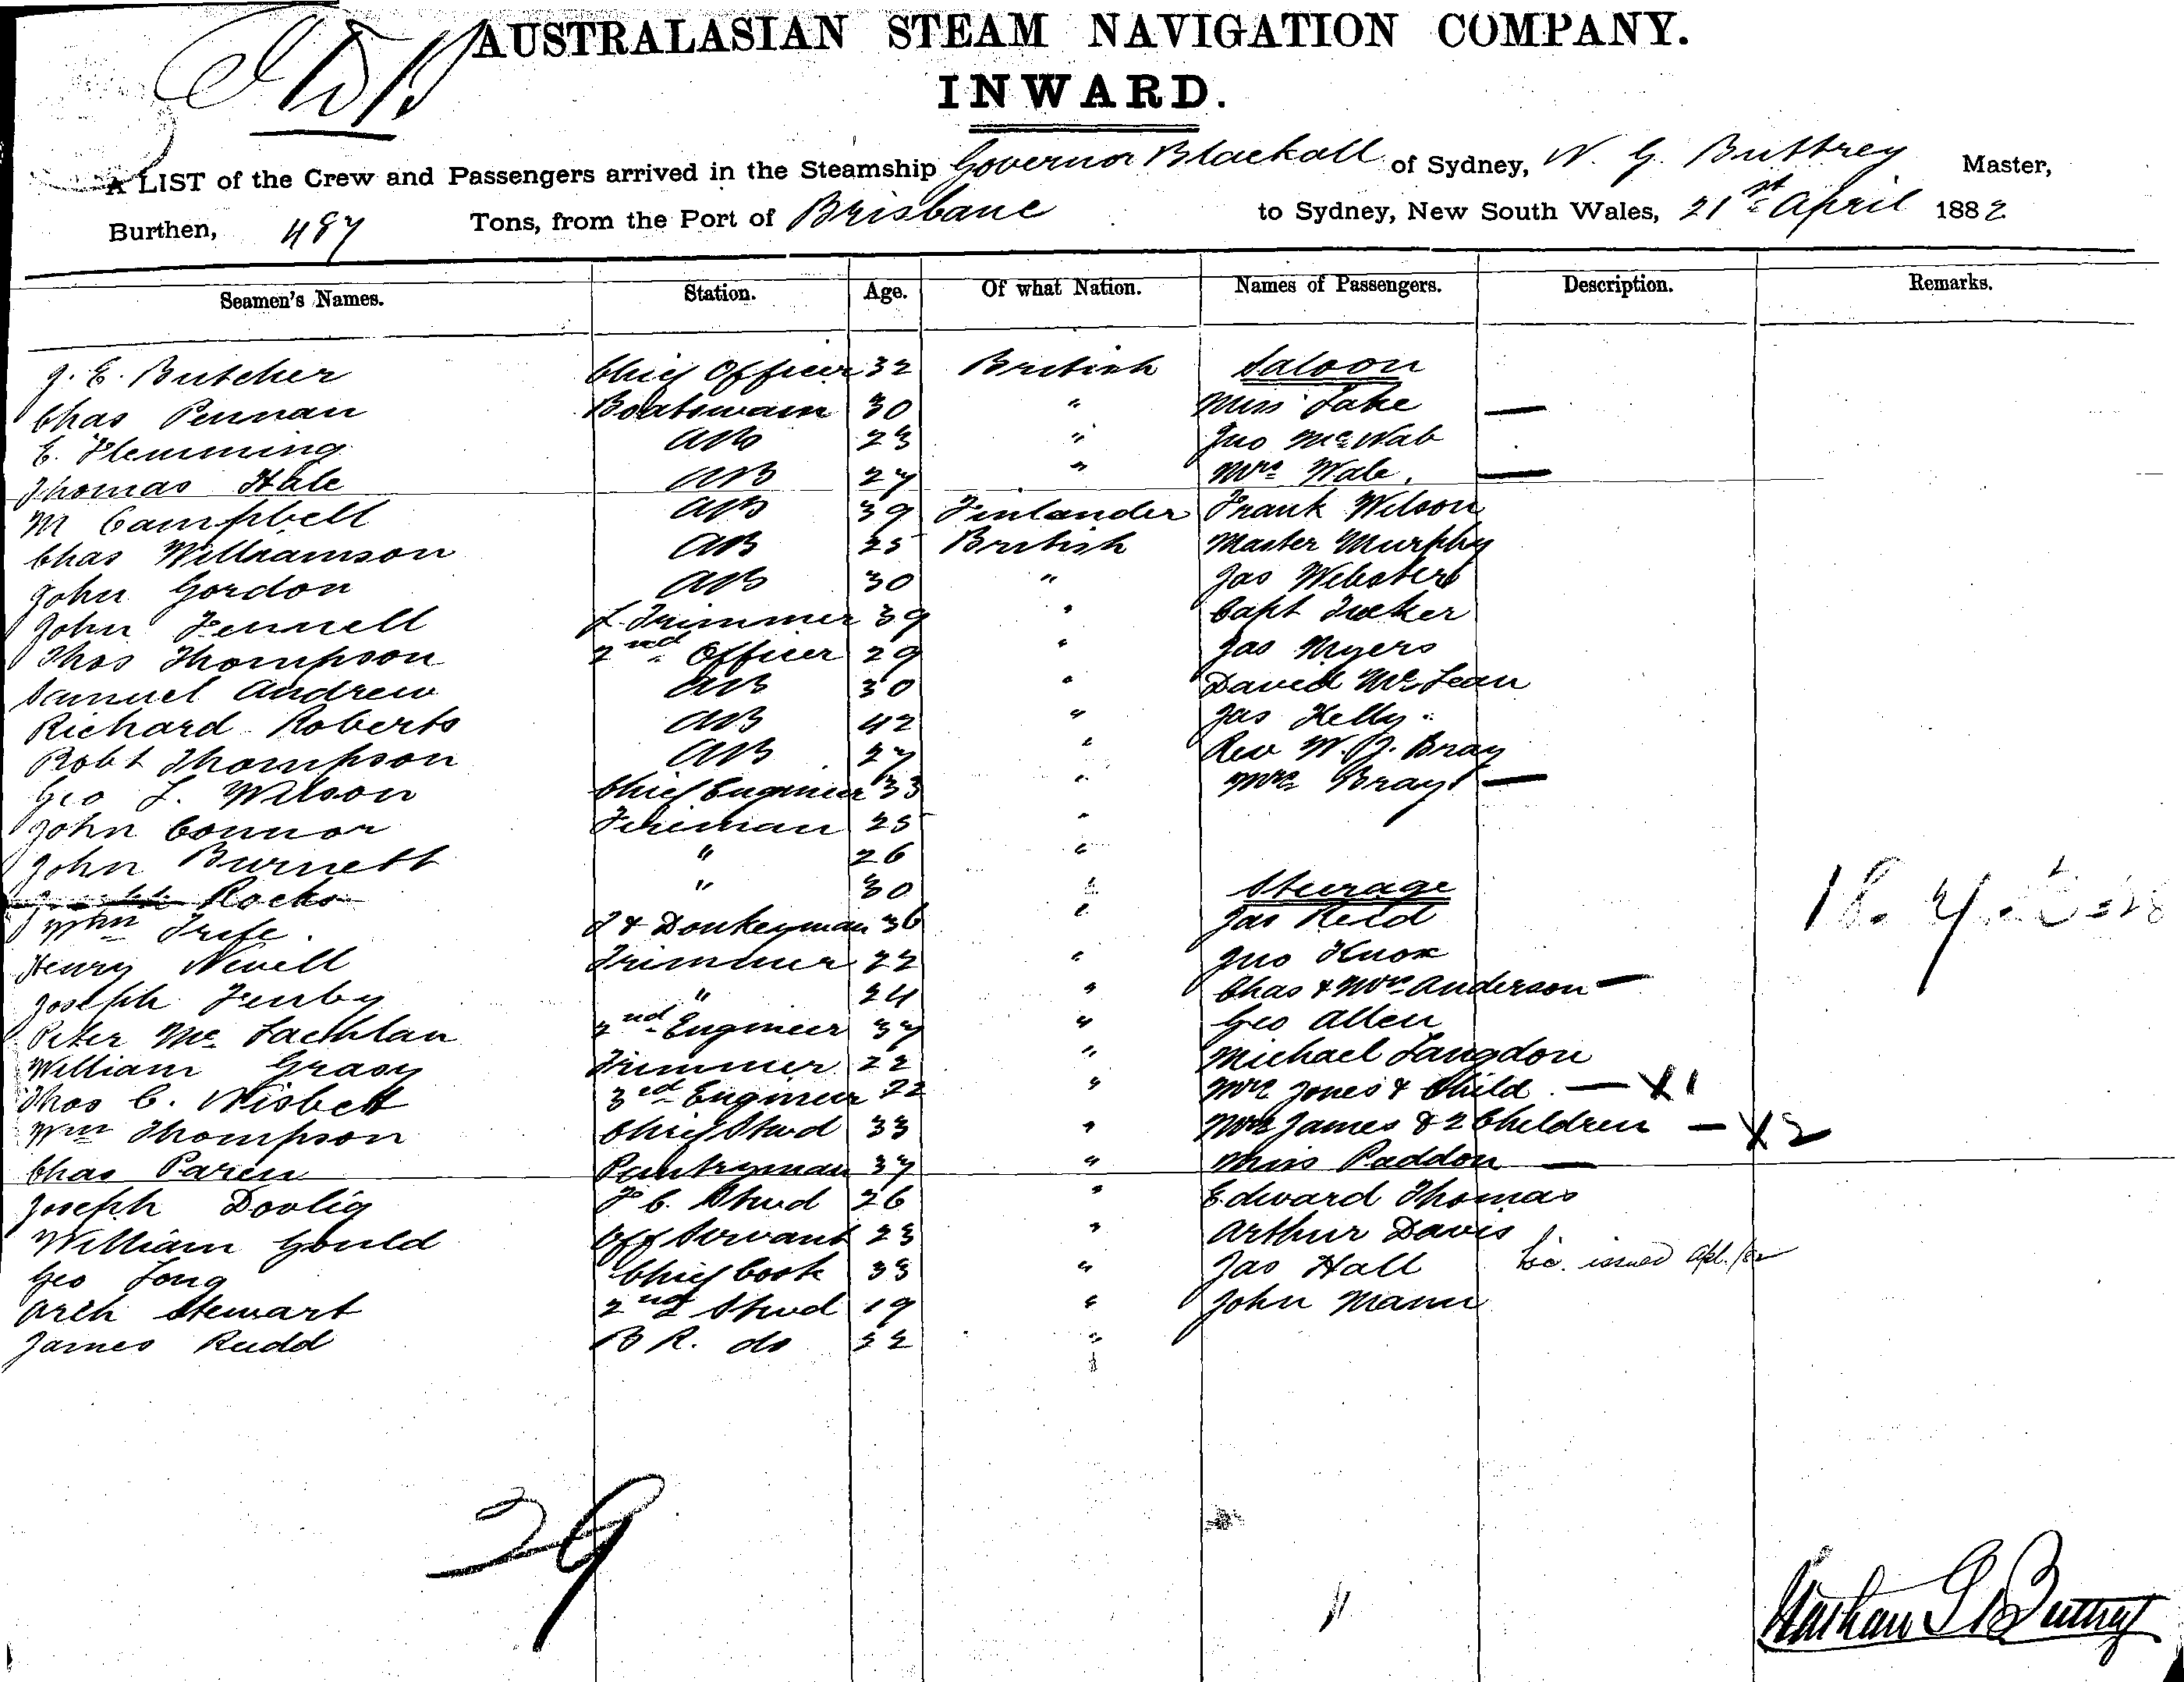 AUSTRALASIAN STEAM NAVIGATION COMPANY.
INWARD.
A LIST of the Crew and Passengers arrived in the Steamship Governor Blackall of Sydney, N. G. Buttrey Master,
Burthen, 487 Tons, from the Port of Brisbane to Sydney, New South Wales, 21st April 1882
Seamen's Names. Station. Age. Of what Nation. Names of Passengers. Description. Remarks.
J. E. Butcher Chief Officer 32 British Saloon
Chas Pennan Boatswain 30 " Miss Lake —
E. Flemming AB 23 " Jno McNab
Thomas Hale AB 27 " Mrs Wale. —
M Campbell AB 39 Finlander Frank Wilson
Chas Williamson AB 25 British Master Murphy
John Gordon AB 30 " Jas Webster
John Fennell L. Trimmer 39 " Capt Tucker
Thos Thompson 2nd Officer 29 " Jas Myers
Samuel Andrew AB 30 " David McLean
Richard Roberts AB 42 " Jas Kelly
Robt Thompson AB 27 " Rev W. J. Bray
Geo L. Wilson Chief Engineer 33 " Mrs Bray —
John Connor Fireman 25 "
John Burnett " 26 "
Rocks " 30 " Steerage
Wm Trife. F & Donkeyman 36 " Jas Reid
Henry Newell Trimmer 22 " Jno Knox
Joseph Fenby " 24 " Chas & Mrs Anderson —
Peter Mc Lachlan 2nd Engineer 37 " Geo Allen
William Grasy Trimmer 22 " Michael Langdon
Thos C. Nisbett 3rd Engineer 22 " Mrs Jones & Child — X1
Wm Thompson Chief Stwd 33 " Mrs James & 2 Children — X2
Chas Paren Pantryman 37 " Miss Paddon —
Joseph Doolig F C. Stwd 26 " Edward Thomas
William Gould Off Servant 23 " Arthur Davis
Geo Long Chief Cook 33 " Jas Hall Lic. issued Apl. /82
Arch Stewart 2nd Stwd 19 " John Mann
James Rudd B R. do 22 "
29
Nathan G Buttrey